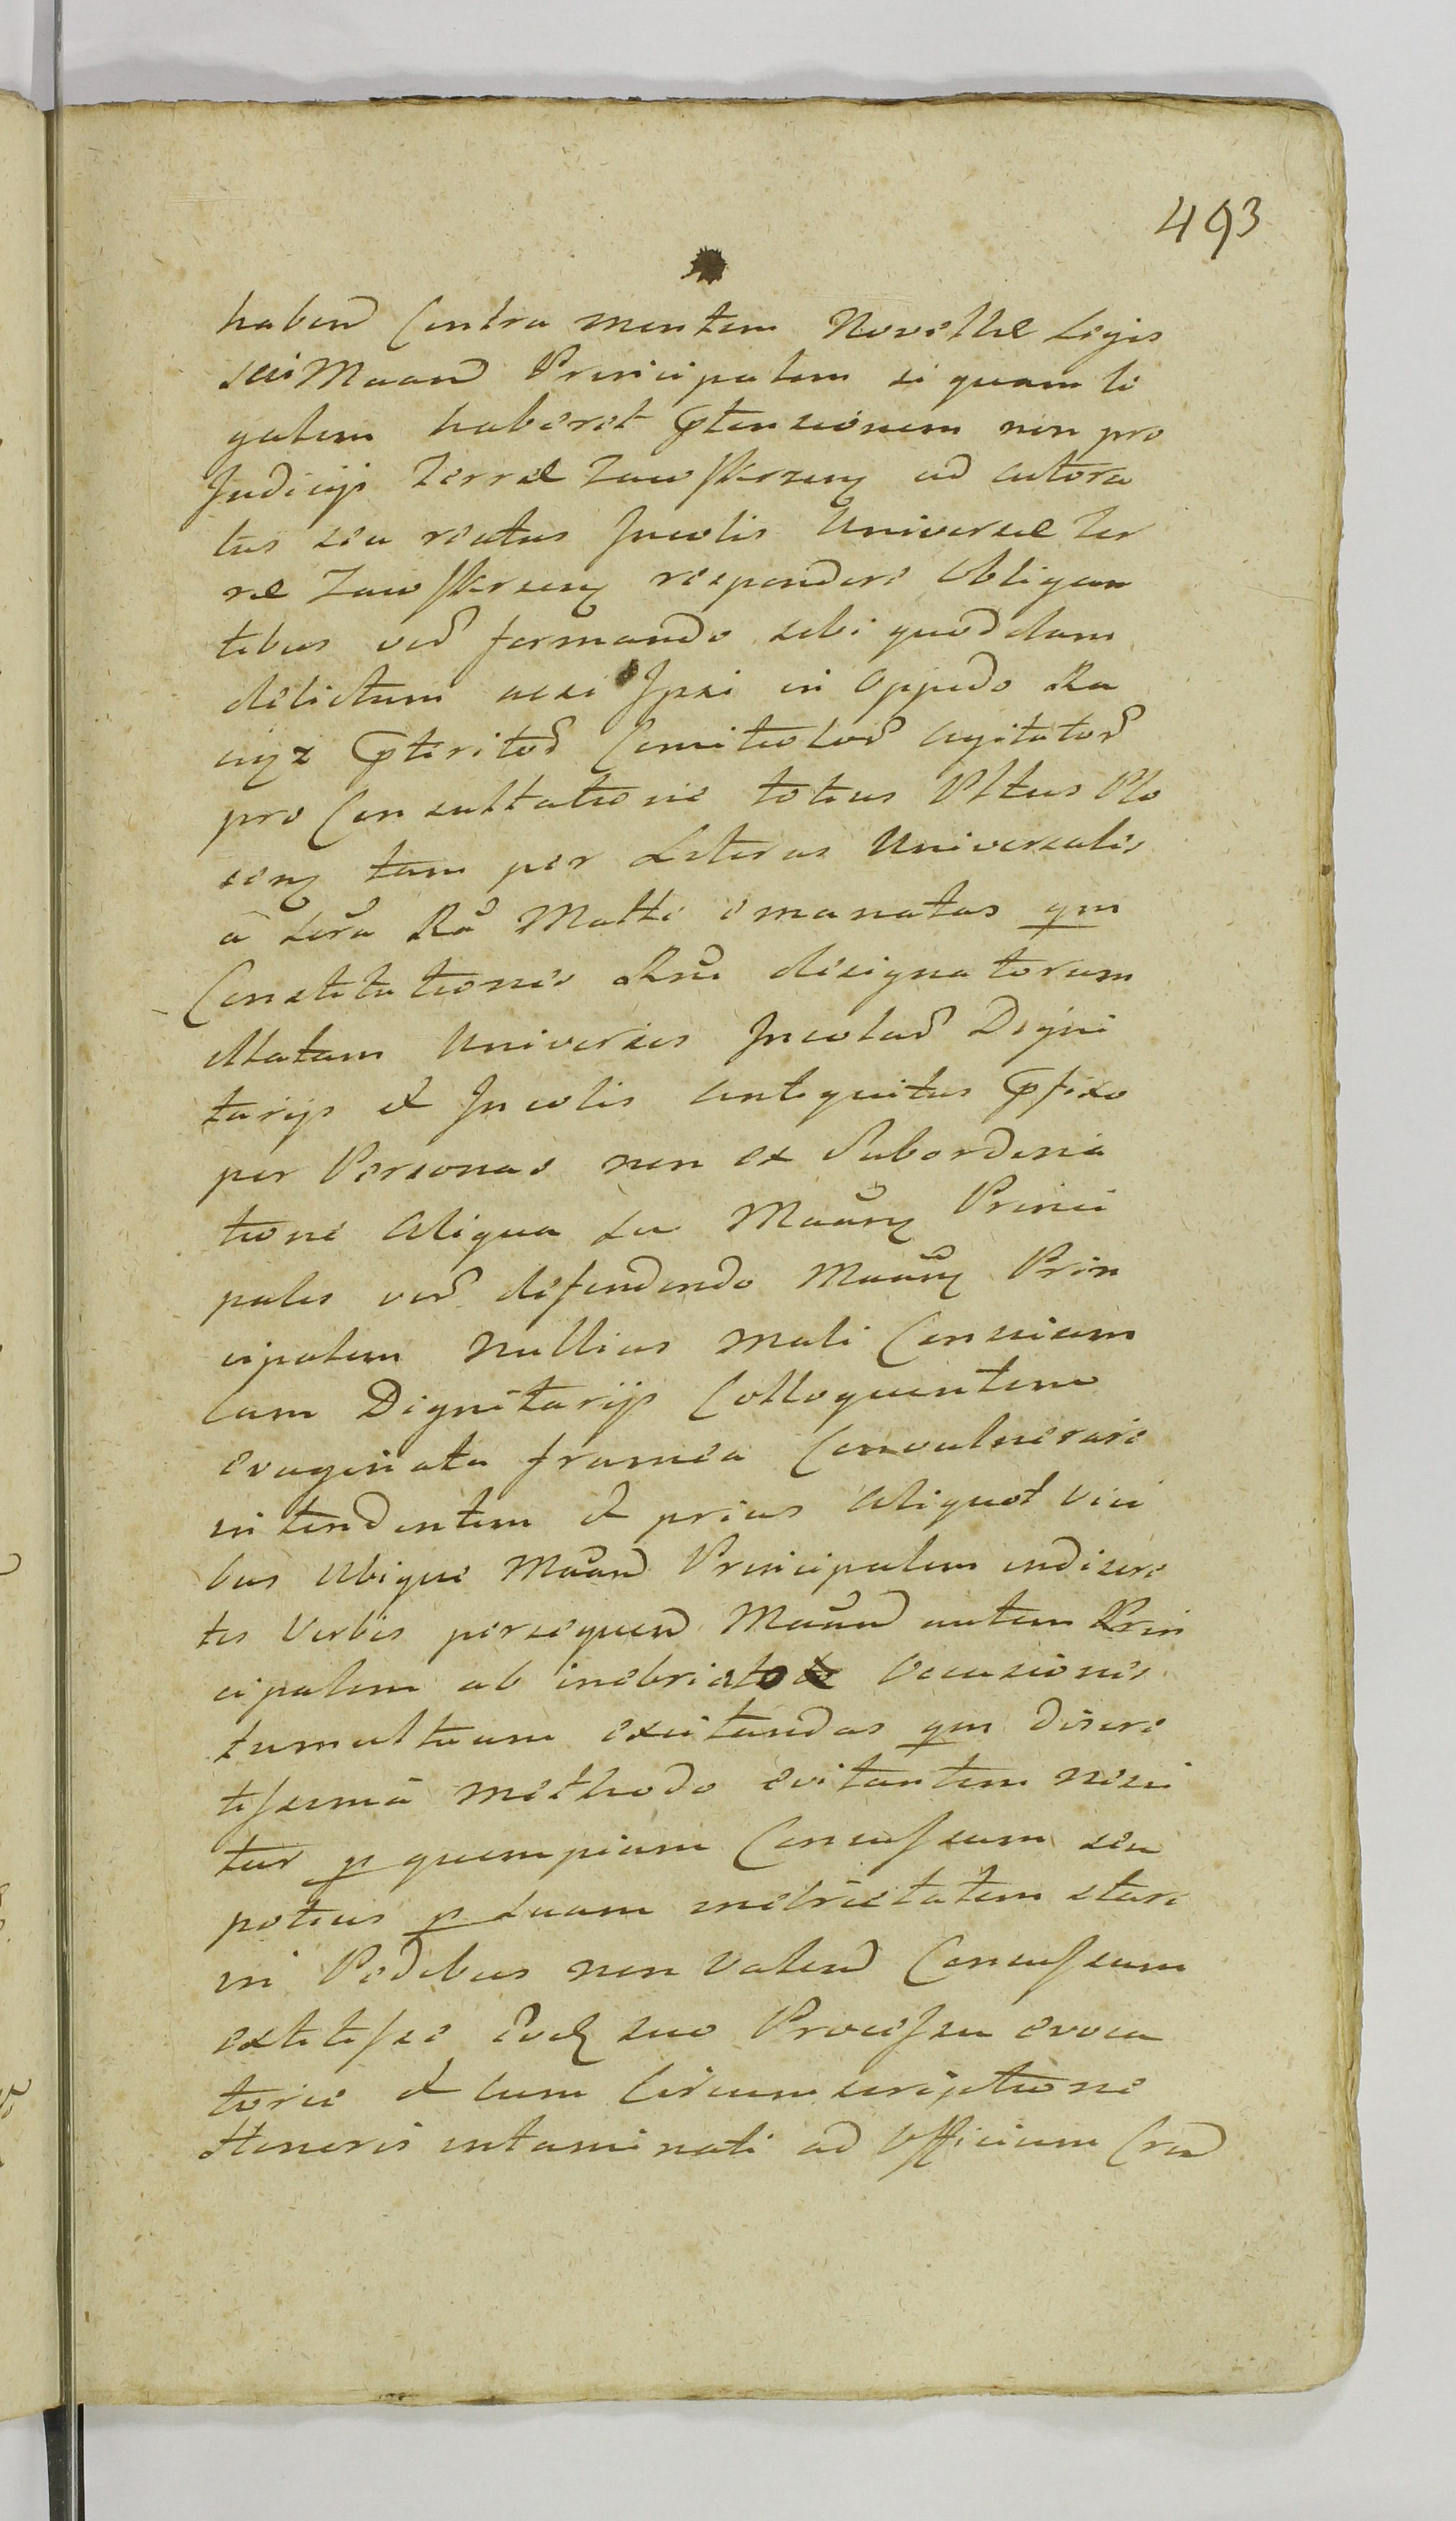 493
haben Contra mentem Novellæ Legis
sui Maand Principalem si quam le
galem haberet ptensionem non pro
Judicijs Terræ Zawskrzen ad citora
tus seu reatus Incolis Universæ Ter
ræ Zawskrzen respondere obligan
tibus ved formando sibi quoddam
delictum acsi Ipsi in Oppido Ra
ciąz pteritor Comitiolor agitator
pro Consultatione totius Pltus Plo
cen tam per Literas Universales
a Sera Ra Matte emanatas qm
Constitutiones Rni designatorum
Statum Universis Incolar Digni
tarijs et Incolis antiquitus pfixo
per Personas non ex Subordina
tione aliqua sa Maan Princi
pales ver defendendo Maan Prin
cipalem Nullius mali Conscium
Cum Dignitarijs Colloquentem
evaginata framea Convulnerare
intendentem et prius aliquot vici
bus ubique Maand Principalem indiscre
tis Verbis persequen Maand autem Prin
cipalem ab inebriato Occasiones
tumultuum excitandas qm discre
tissima methodo evitantem nesci
tur p quempiam Concussum seu
potius p suam inebrietatem stare
in Pedibus non valend Concussum
extitisse Eodq suo Processu evoca
torio et cum Circumscriptione
Honoris intaminati ad Officium Crd